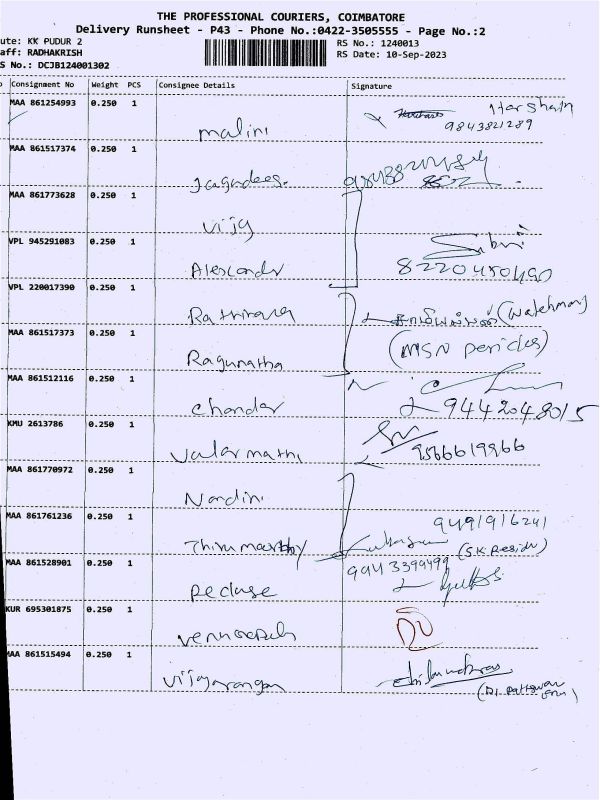 THE PROFESSIONAL COURIERS, COIMBATORE
Delivery Runsheet - P43 - Phone No.:0422-3505555 - Page No.:2
ute: KK PUDUR 2
RS No.: 1240013
aff: RADHAKRISH
RS Date: 10-Sep-2023
S No.: DCJB124001302
Consignment No Weight PCS Consignee Details Signature
MAA 861254993 0.250 1 malini Harshath
9843821289
MAA 861517374 0.250 1 Jagadees.
MAA 861773628 0.250 1 vijy
VPL 945291083 0.250 1 Alexander Subri
8220450490
VPL 220017390 0.250 1 Rathirang (Watchman)
MAA 861517373 0.250 1 Ragunatha (MSN pericles)
MAA 861512116 0.250 1 chandar
9442048015
KMU 2613786 0.250 1 Valarmathi 9566619966
MAA 861770972 0.250 1 Nandini
MAA 861761236 0.250 1 Thirumoorthy 9491916241
(S.K Residn)
MAA 861528901 0.250 1 9943399499
KUR 695301875 0.250 1
MAA 861515494 0.250 1 Vijayarangan